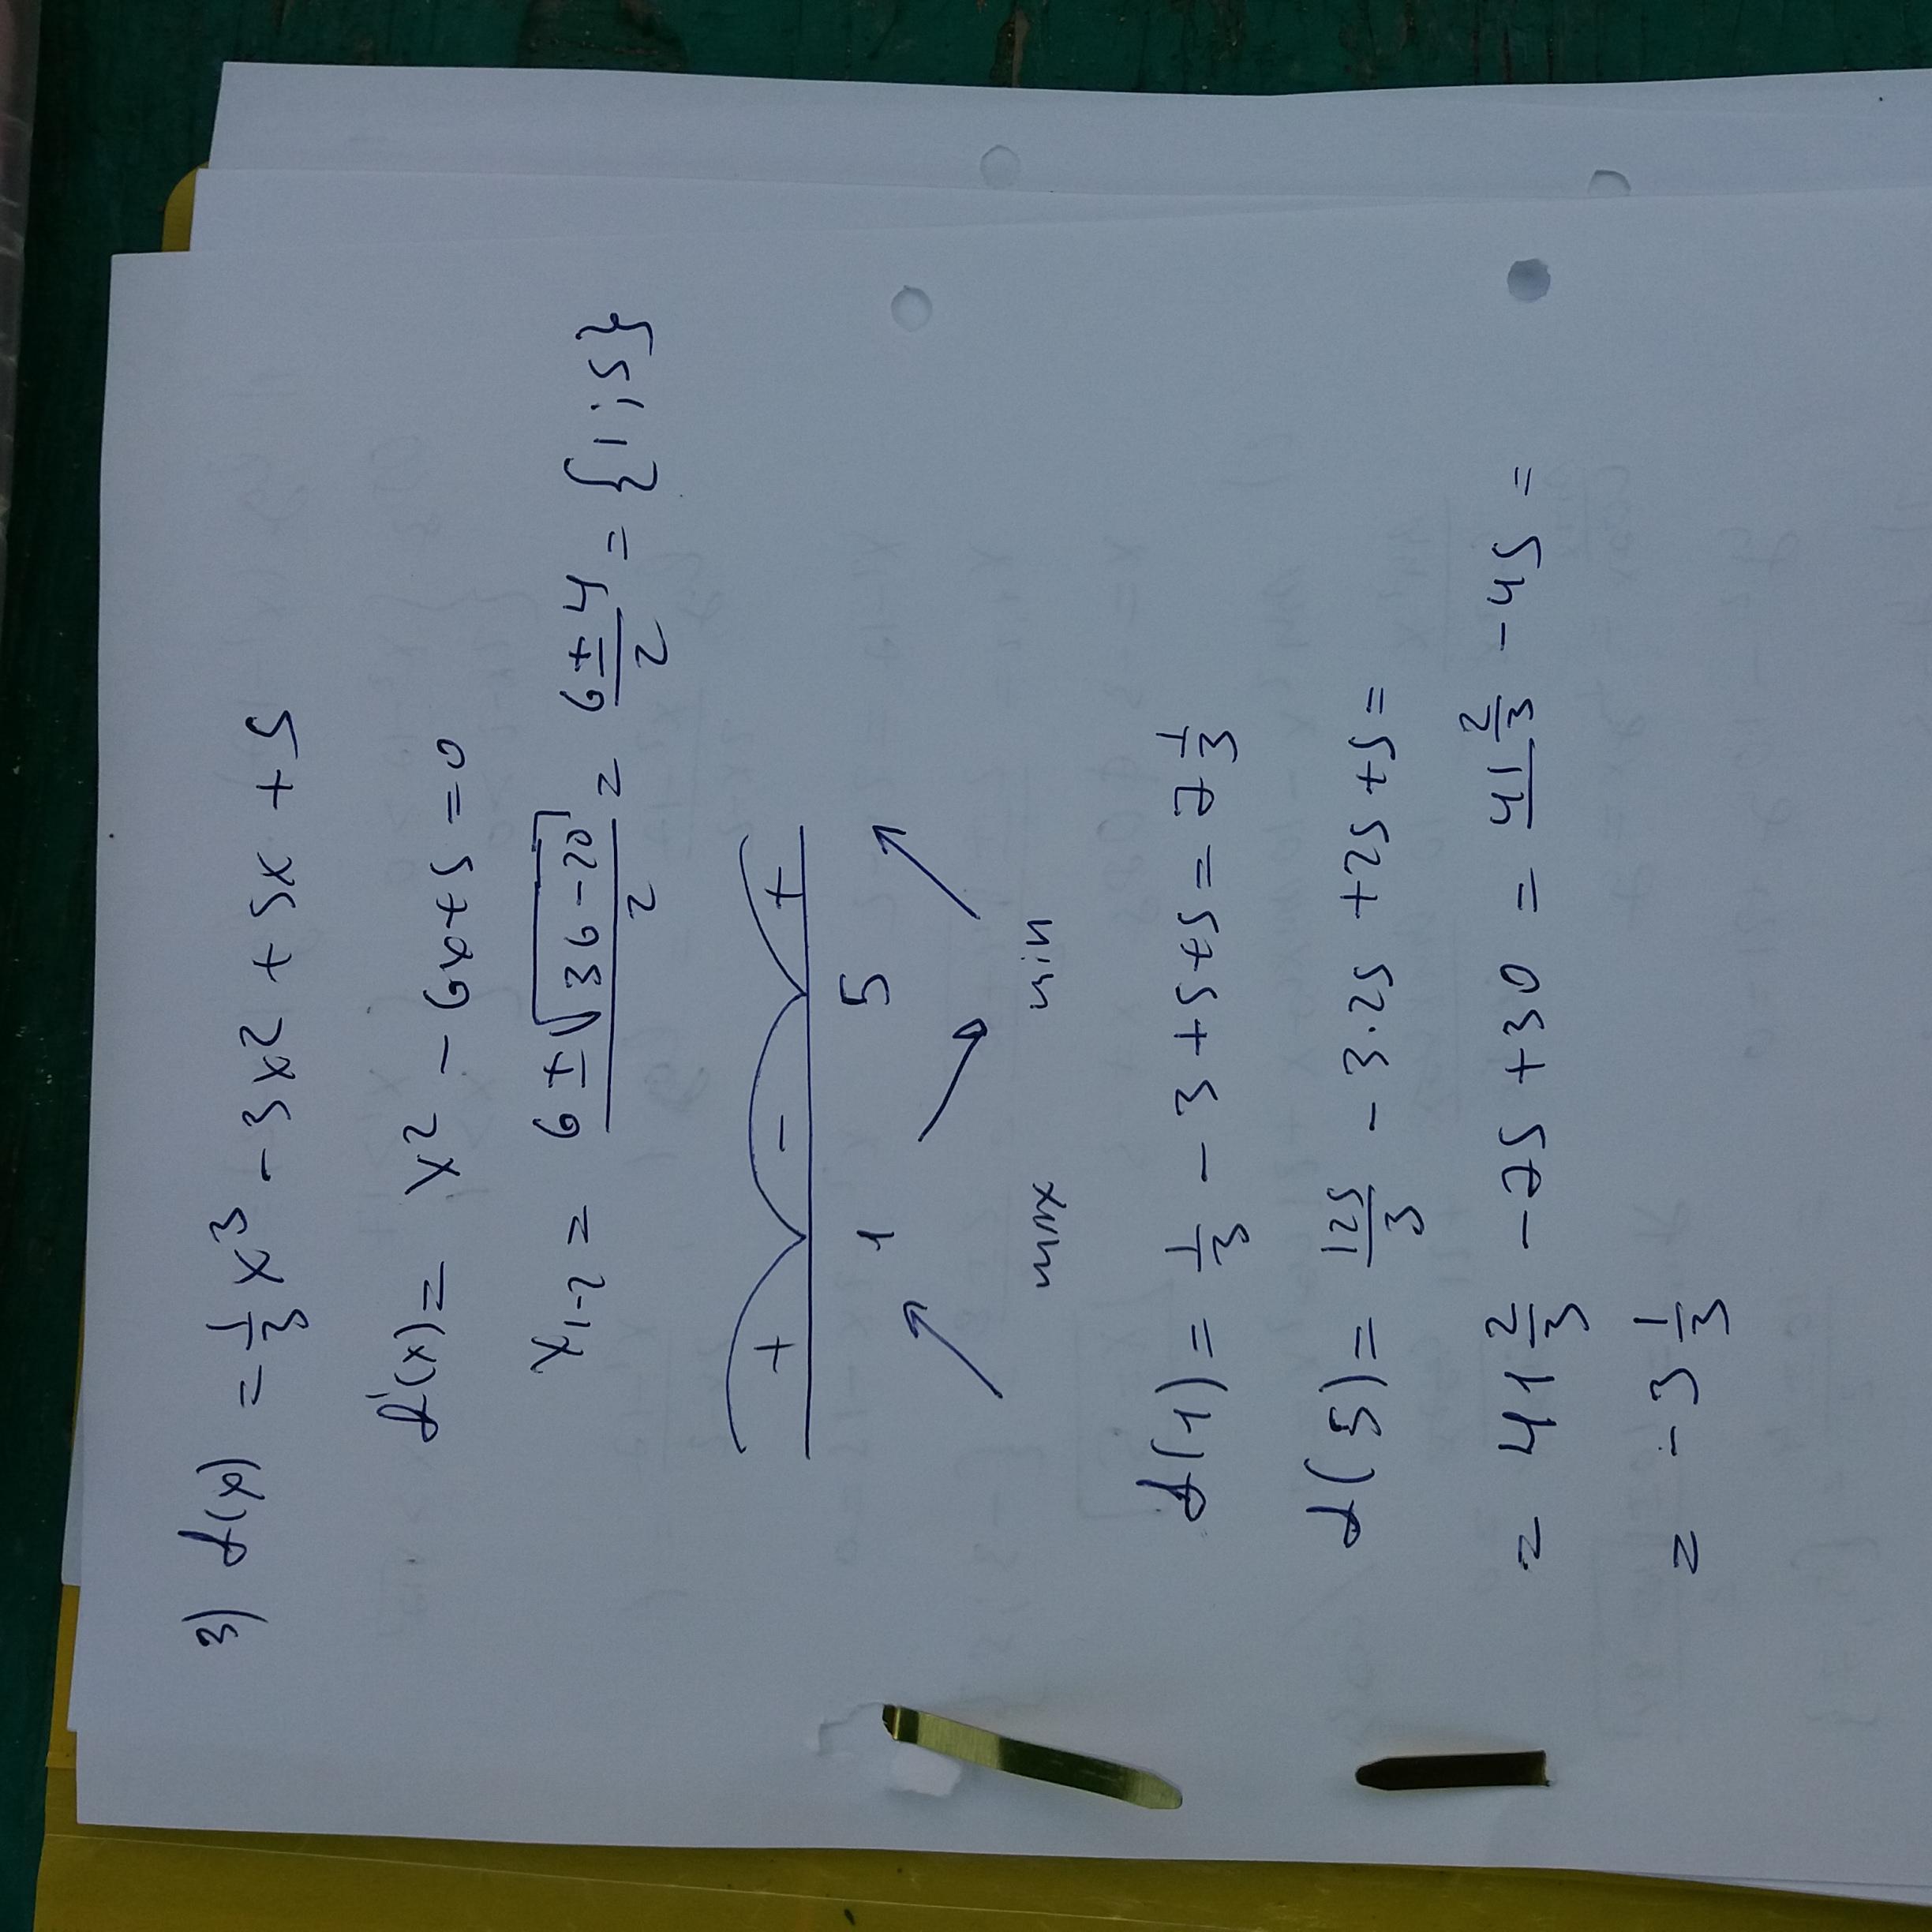 3) f(x) = 1/3 x³ - 3x² + 5x + 5
f'(x) = x² - 6x + 5 = 0
x₁₋₂ = (6 ± √(36 - 20))/2 = (6 ± 4)/2 = {1; 5}
+ - +
1 5
max min
f(1) = 1/3 - 3 + 5 + 5 = 7 1/3
f(5) = 125/3 - 3·25 + 25 + 5 =
= 41 2/3 - 75 + 30 = 41 2/3 - 45 =
= - 3 1/3